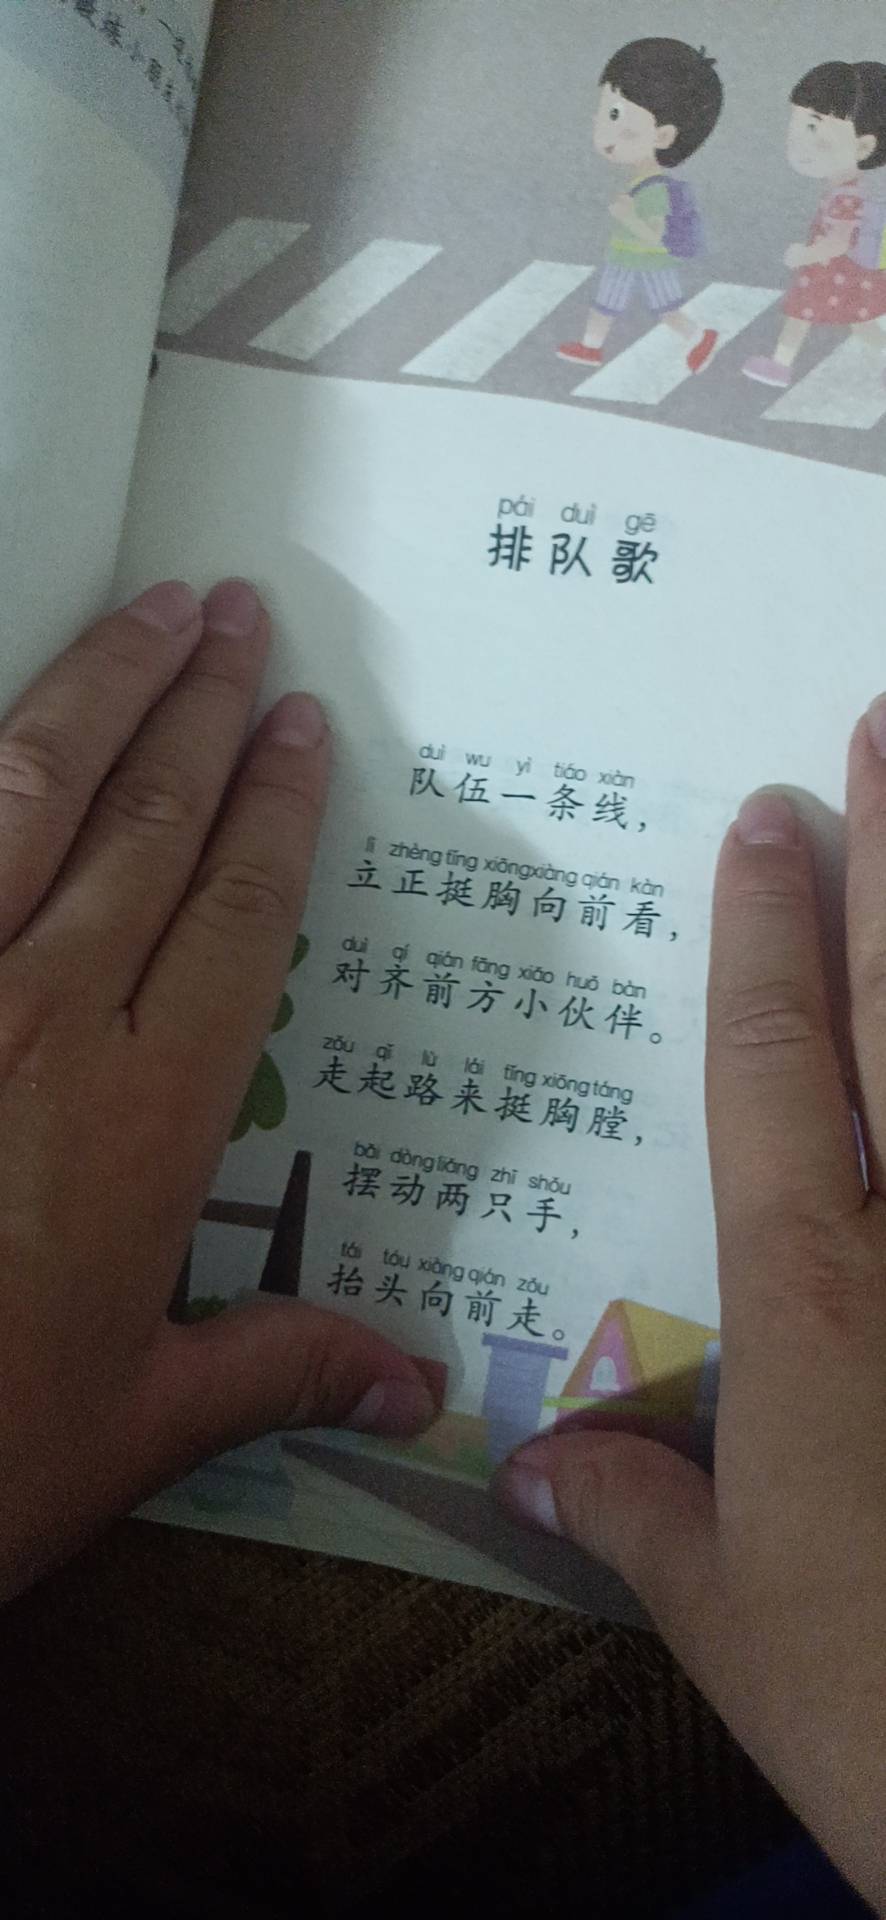 pái duì gē
排队歌
duì wu yì tiáo xiàn
队伍一条线，
lì zhèng tǐng xiōng xiàng qián kàn
立正挺胸向前看，
duì qí qián fāng xiǎo huǒ bàn
对齐前方小伙伴。
zǒu qǐ lù lái tǐng xiōng táng
走起路来挺胸膛，
bǎi dòng liǎng zhī shǒu
摆动两只手，
tái tóu xiàng qián zǒu
抬头向前走。